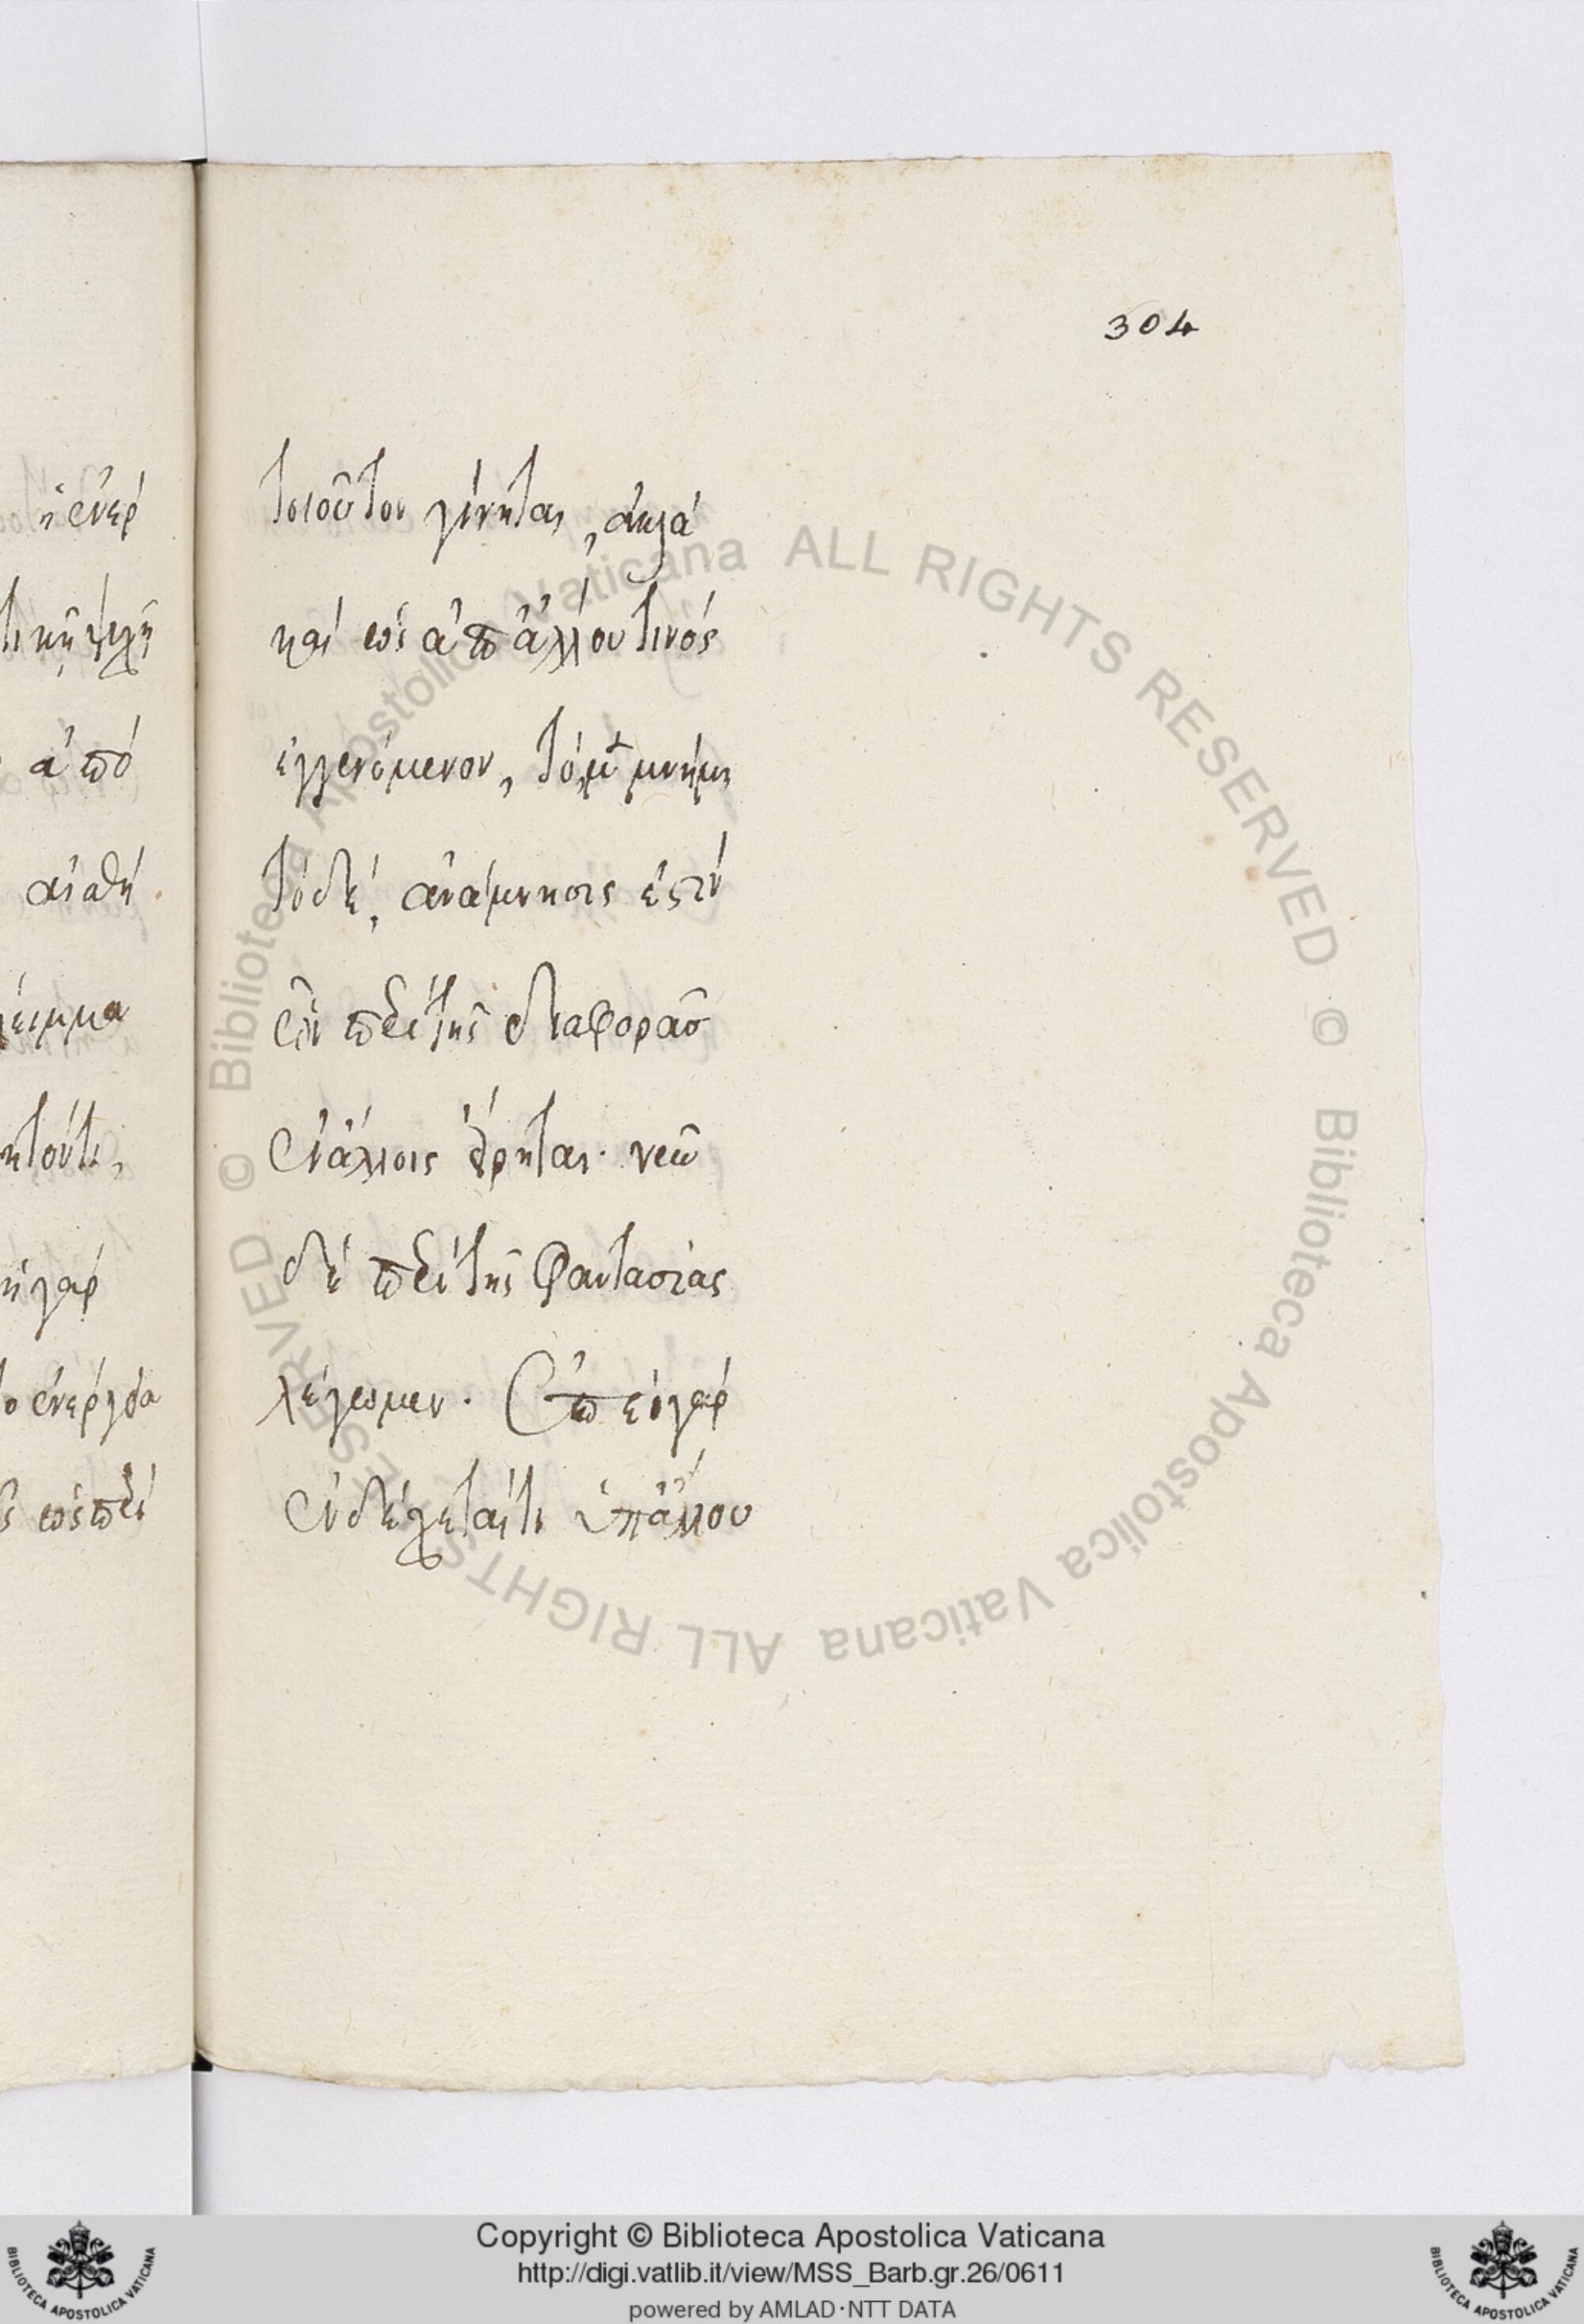 304
ἡ ἐνερ
τικῇ ψυχῇ
ἀπὸ
αἰσθή
λειμμα
κτούτι,
ἡ γὰρ
ἐνεργεία
ὡς περὶ
τοιοῦτον γίνηται, ἀλλὰ
καὶ ὡς ἀπὸ ἄλλου τινός
ἐγγενόμενον, τὸ μὲν μνήμη
τὸ δὲ, ἀνάμνησις ἐστίν
ὧν περὶ τῆς διαφορᾶσ
ἐν ἄλλοις εἴρηται. νῦν
δὲ περὶ τῆς φαντασίας
λέγωμεν. Ἐπεὶ γὰρ
ἐνδέχεταί τι ὑπ' ἄλλου
Biblioteca Apostolica Vaticana ALL RIGHTS RESERVED © Biblioteca Apostolica Vaticana ALL RIGHTS RESERVED ©
Copyright © Biblioteca Apostolica Vaticana
http://digi.vatlib.it/view/MSS_Barb.gr.26/0611
powered by AMLAD·NTT DATA
BIBLIOTECA APOSTOLICA VATICANA
BIBLIOTECA APOSTOLICA VATICANA